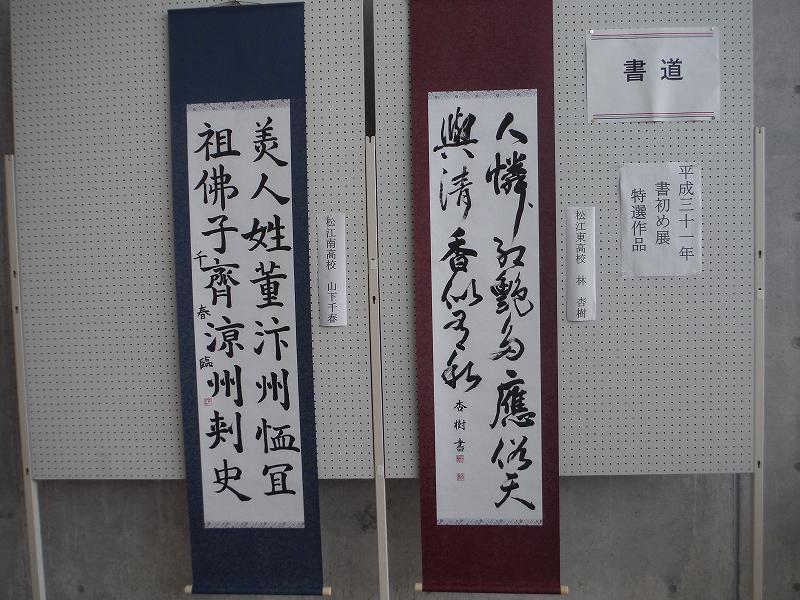 書道
平成三十一年
書初め展
特選作品
松江東高校 林 杏樹
人憐紅艶多應俗天
與清香似有私
杏樹書
松江南高校 山下千春
美人姓董汴州恤冝
祖佛子齊涼州刺史
千春臨